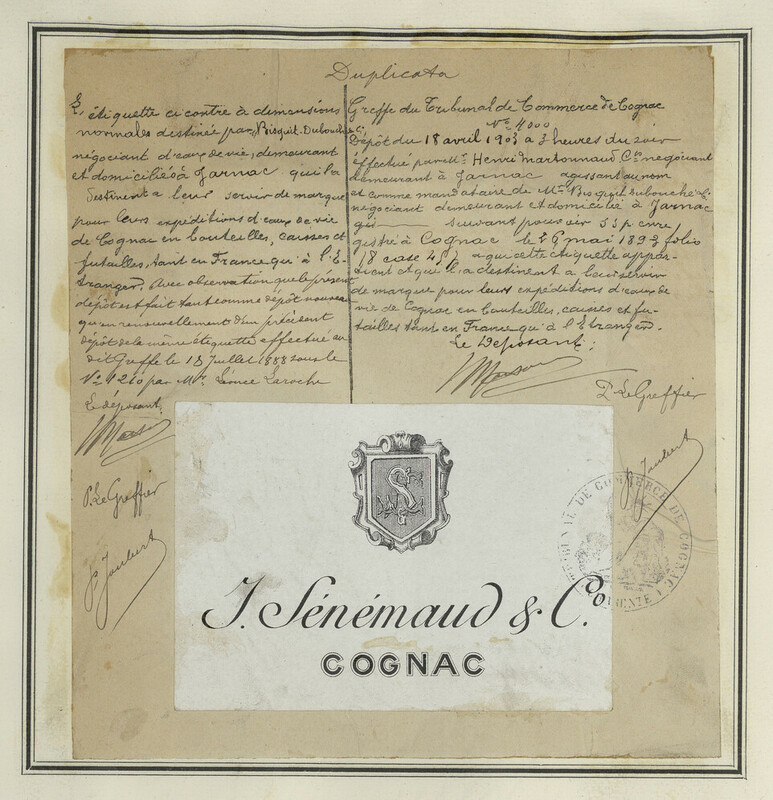 Duplicata
L'étiquette ci contre à dimensions
normales destinée par Bisquit-Dubouché & Cie
négociant d'eaux de vie, demeurant
et domiciliés à Jarnac qui la
destinent à leur servir de marque
pour leurs expéditions d'eaux de vie
de Cognac en bouteilles, caisses et
futailles, tant en France qu'à l'É-
tranger. Avec observation que le présent
dépôt est fait tant comme dépôt nouveau
qu'en renouvellement d'un précédent
dépôt de la même étiquette effectué au
dit Greffe le 13 Juillet 1888 sous le
No 1260 par Mr Léonce Laroche
Le déposant,
P. Le Greffier
P. Joubert
Greffe du Tribunal de Commerce de Cognac
No 4000
Dépôt du 18 avril 1903 à 3 heures du soir
effectué par Mr Henri Martonnaud Cts négociant
demeurant à Jarnac agissant au nom
et comme mandataire de MM. Bisquit Dubouché & Cie
négociant demeurant et domicilié à Jarnac
qui suivant pouvoir s s p enre
gistré à Cognac le 26 mai 1893 folio
18 case à qui cette étiquette appar-
tient et qui l'a destinent à leur servir
de marque pour leurs expéditions d'eaux de
vie de Cognac en bouteilles, caisses et fu-
tailles tant en France qu'à l'Etranger.
Le Déposant;
P. Le Greffier
P. Joubert
TRIBUNAL DE COMMERCE DE COGNAC
CHARENTE
J. Sénémaud & Co.
COGNAC